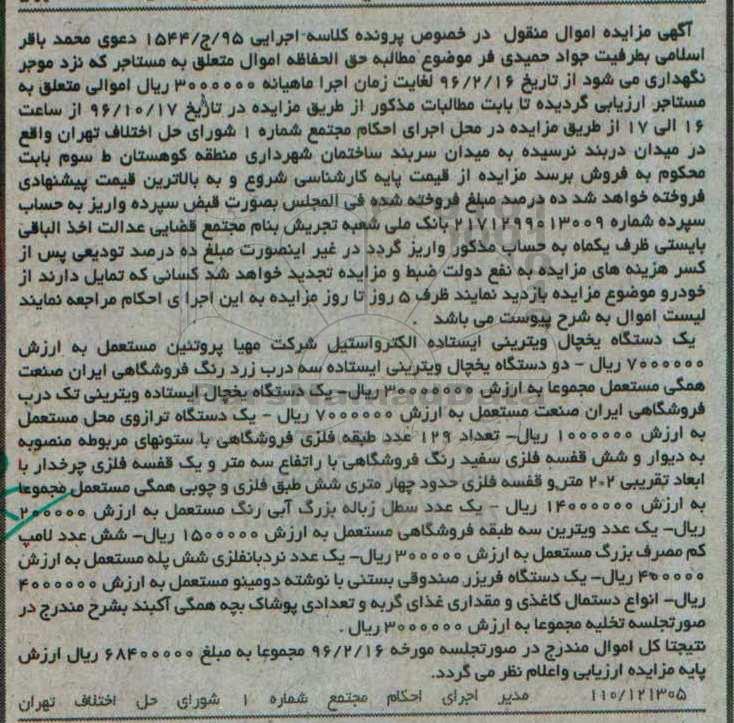 آگهی مزایده اموال منقول در خصوص پرونده کلاسه اجرایی ۱۵۴۴/ج/۹۵ دعوی محمد باقر
اسلامی بطرفیت جواد حمیدی فر موضوع مطالبه حق الحفاظه اموال متعلق به مستاجر که نزد موجر
نگهداری می شود از تاریخ ۹۶/۲/۱۶ لغایت زمان اجرا ماهیانه ۳۰۰۰۰۰۰ ریال اموالی متعلق به
مستاجر ارزیابی گردیده تا بابت مطالبات مذکور از طریق مزایده در تاریخ ۹۶/۱۰/۱۷ از ساعت
۱۶ الی ۱۷ از طریق مزایده در محل اجرای احکام مجتمع شماره ۱ شورای حل اختلاف تهران واقع
در میدان دربند نرسیده به میدان سربند ساختمان شهرداری منطقه کوهستان ط سوم بابت
محکوم به فروش برسد مزایده از قیمت پایه کارشناسی شروع و به بالاترین قیمت پیشنهادی
فروخته خواهد شد ده درصد مبلغ فروخته شده فی المجلس بصورت قبض سپرده واریز به حساب
سپرده شماره ۲۱۷۱۲۹۹۰۱۳۰۰۹ بانک ملی شعبه تجریش بنام مجتمع قضایی عدالت اخذ الباقی
بایستی ظرف یکماه به حساب مذکور واریز گردد در غیر اینصورت مبلغ ده درصد تودیعی پس از
کسر هزینه های مزایده به نفع دولت ضبط و مزایده تجدید خواهد شد کسانی که تمایل دارند از
خودرو موضوع مزایده بازدید نمایند ظرف ۵ روز تا روز مزایده به این اجرا ی احکام مراجعه نمایند
لیست اموال به شرح پیوست می باشد .
یک دستگاه یخچال ویترینی ایستاده الکترواستیل شرکت مهیا پروتئین مستعمل به ارزش
۷۰۰۰۰۰۰ ریال - دو دستگاه یخچال ویترینی ایستاده سه درب زرد رنگ فروشگاهی ایران صنعت
همگی مستعمل مجموعا به ارزش ۳۰۰۰۰۰۰۰ ریال- یک دستگاه یخچال ایستاده ویترینی تک درب
فروشگاهی ایران صنعت مستعمل به ارزش ۷۰۰۰۰۰۰ ریال - یک دستگاه ترازوی محل مستعمل
به ارزش ۱۰۰۰۰۰۰ ریال- تعداد ۱۲۹ عدد طبقه فلزی فروشگاهی با ستونهای مربوطه منصوبه
به دیوار و شش قفسه فلزی سفید رنگ فروشگاهی با راتفاع سه متر و یک قفسه فلزی چرخدار با
ابعاد تقریبی ۲*۲ متر و قفسه فلزی حدود چهار متری شش طبق فلزی و چوبی همگی مستعمل مجموعا
به ارزش ۱۴۰۰۰۰۰۰ ریال - یک عدد سطل زباله بزرگ آبی رنگ مستعمل به ارزش ۲۰۰۰۰۰
ریال- یک عدد ویترین سه طبقه فروشگاهی مستعمل به ارزش ۱۵۰۰۰۰۰ ریال- شش عدد لامپ
کم مصرف بزرگ مستعمل به ارزش ۳۰۰۰۰۰ ریال- یک عدد نردبانفلزی شش پله مستعمل به ارزش
۴۰۰۰۰۰ ریال- یک دستگاه فریزر صندوقی بستنی با نوشته دومینو مستعمل به ارزش ۴۰۰۰۰۰۰
ریال- انواع دستمال کاغذی و مقداری غذای گربه و تعدادی پوشاک بچه همگی آکبند بشرح مندرج در
صورتجلسه تخلیه مجموعا به ارزش ۳۰۰۰۰۰۰ ریال .
نتیجتا کل اموال مندرج در صورتجلسه مورخه ۹۶/۲/۱۶ مجموعا به مبلغ ۶۸۴۰۰۰۰۰ ریال ارزش
پایه مزایده ارزیابی واعلام نظر می گردد.
۱۱۰/۱۲۱۳۰۵ مدیر اجرای احکام مجتمع شماره ۱ شورای حل اختلاف تهران